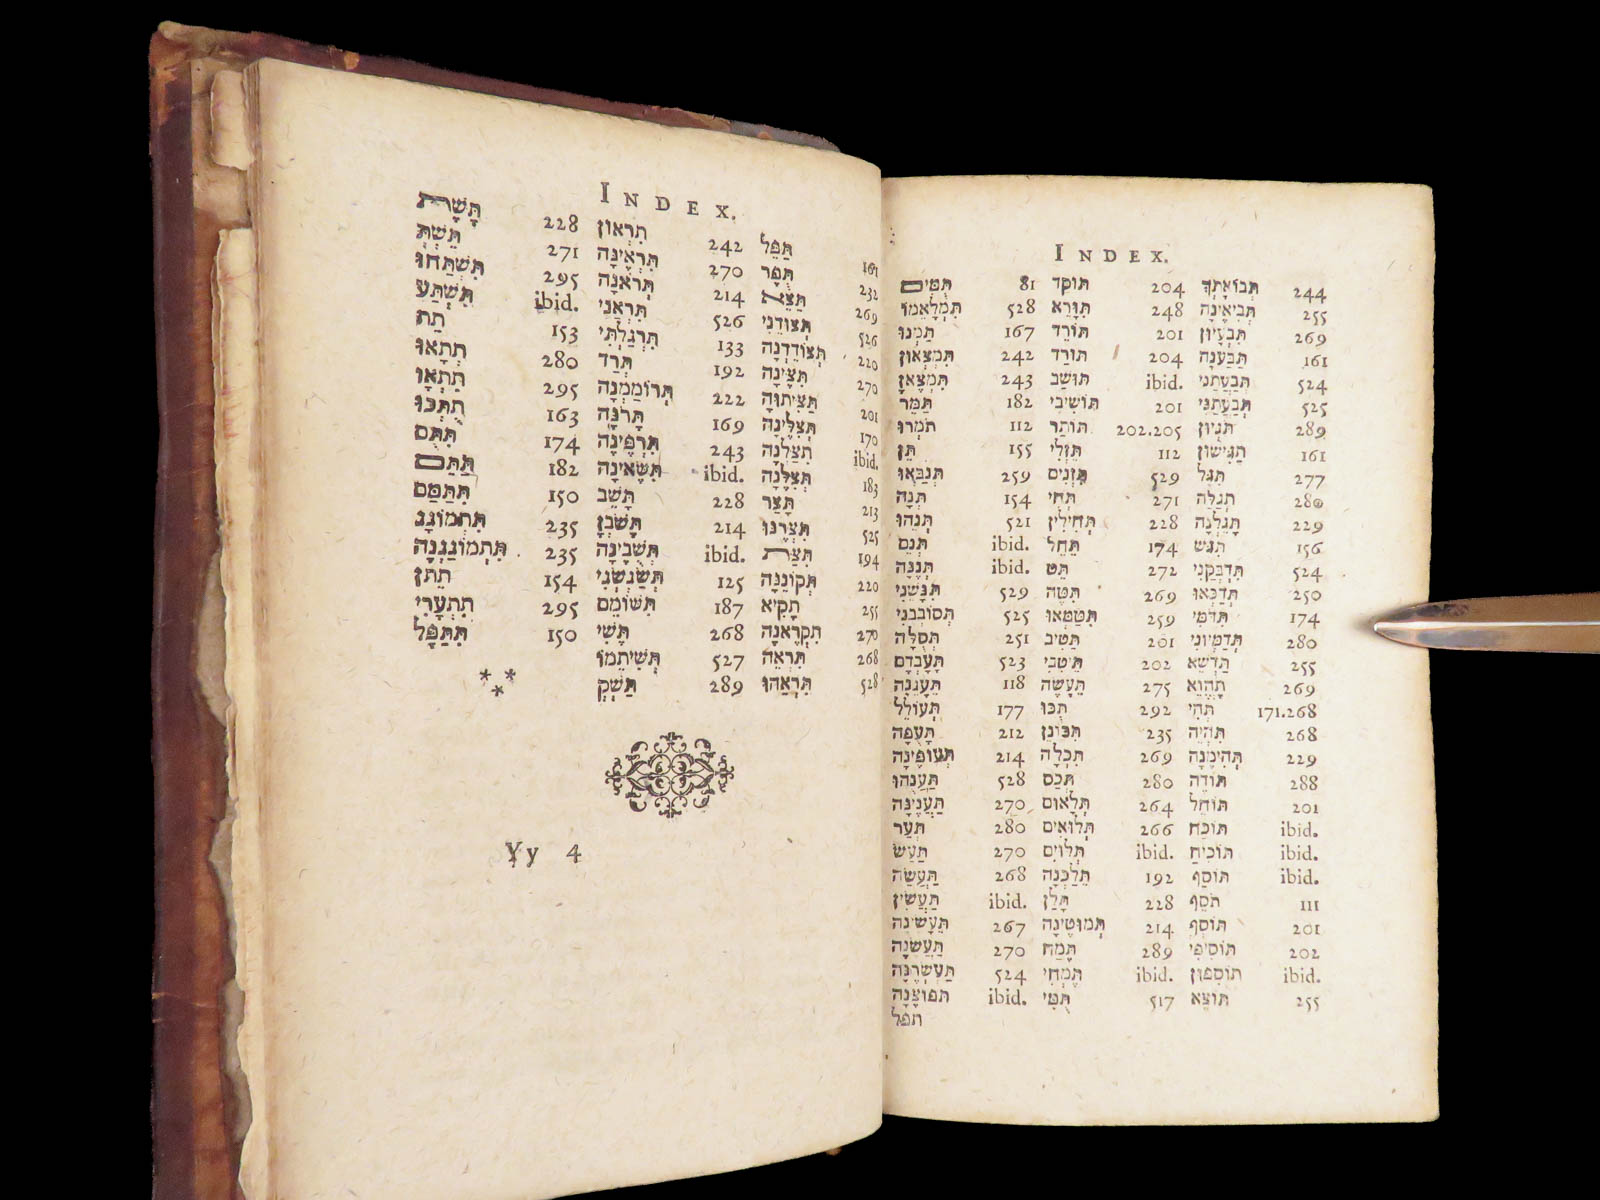 INDEX.
תְּבוֹאָתְךָ 244
תְּבִיאֶינָה 255
תִּבְזִיוּן 269
תַּבַּעְנָה 161
תְּבַעֲתַנִּי 524
תְּבַעֲתַנִּי 525
תֹּגְיוּן 289
תַּגִּישׁוּן 161
תִּגֶל 277
תְּגַלֶּה 280
תָּגֵלְנָה 229
תִּגַּשׁ 156
תִּדְבָּקַנִי 524
תְּדַכְּאוּ 250
תִּדֹּמִּי 174
תְּדַמְּיוּנִי 280
תַּדְשֵׁא 255
תֶּהֱוֵא 269
תְּהִי 171.268
תִּהְיֶה 268
תְּהִימֶנָה 229
תּוֹדֶה 288
תּוֹחֵל 201
תּוֹכַח ibid.
תּוֹכִיחַ ibid.
תּוֹסַף ibid.
תֹּסֵף 111
תּוֹסְףְ 201
תּוֹסִיפִי 202
תּוֹסִפוּן ibid.
תּוֹצֵא 255
תּוּקַד 204
תִּוָּרֵא 248
תּוֹרֵד 201
תּוּרַד 204
תּוּשַׁב ibid.
תּוֹשִׁיבִי 201
תּוֹתַר 202.205
תֵּזְלִי 112
תְּזֻנִים 529
תְּחִי 271
תְּחִילִין 228
תָּחֵל 174
תֵּט 272
תִּטֶּה 269
תִּטַּמְּאוּ 259
תֵּטִיב 201
תֵּיטְבִי 202
תֵּעָשֶׂה 275
תֻּכּוּ 292
תִּכּוֹנֵן 235
תִּכְלֶה 269
תְּכַס 280
תְּלָאוּם 264
תְּלוּאִים 266
תְּלוּיִם ibid.
תֵּלַכְנָה 192
תָּלַן 228
תְּמוּטֶינָה 214
תֶּמַח 289
תֶּמְחִי ibid.
תֶּשִׁי 517
תְּמִים 81
תִּמְלָאֵמוֹ 528
תִּמְנוּ 167
תִּמְצְאוּן 242
תִּמְצֶאןָ 243
תַּמֵּר 182
תֹּמְרוּ 112
תֵּן 155
תְּנַבְּאוּ 259
תְּנָה 154
תְּנֵהוּ 521
תְּנֵם ibid.
תְּנֶנָּה ibid.
תִּנָּשֵׁנִי 529
תְּסוֹבְבֵנִי 525
תְּסֻלֶּה 251
תָּעָבְדֵם 523
תֵּעָגֵנָה 118
תְּעוֹלֵל 177
תָּעֻפָה 212
תְּעוּפֶינָה 214
תַּעֲנֵהוּ 528
תַּעֲנֶינָה 270
תְּעַר 280
תַּעַשׂ 270
תַּעֲשֶׂה 268
תַּעֲשִׂין ibid.
תֵּעָשֶׂינָה 267
תַּעֲשֶׂנָה 270
תַּעְשְׁרֶנָּה 524
תְּפוּצֶנָה ibid.
תפל
INDEX.
תַּפֵּל 161
תָּפֵר 232
תֵּצֵא 269
תְּצוּדֵנִי 526
תְּצוֹדֵדְנָה 220
תֵּצֶינָה 270
תַּצִּיתוּהָ 201
תְּצִלֶּינָה 170
תִּצַּלְנָה ibid.
תְּצִלֶּנָה 183
תָּצַר 213
תִּצְּרֶנּוּ 525
תִּצַּת 194
תְּקוֹנֵנָּה 220
תָּקִיא 255
תִּקְרֶאנָה 270
תֵּרָאֶה 268
תִּרְאֵהוּ 528
תִּרְאוּן 242
תִּרְאֶינָה 270
תִּרְאֶנָה 214
תִּרְאֵנִי 526
תִּרְגַּלְתִּי 133
תֵּרַד 192
תְּרוֹמַמְנָה 222
תָּרֹנָּה 169
תִּרְפֶּינָה 243
תִּשֶּׂאינָה ibid.
תָּשֵׁב 228
תָּשֹׁבְןָ 214
תְּשֻׁבֶינָה ibid.
תְּשַׂגְשֵׂגִי 125
תִּשּׁוֹמֵם 187
תֶּשִׁי 268
תְּשִׁיתֵמוֹ 527
תַּשְׁקְ 289
תָּשֻׁרִת 228
תֵּשְׁתְּ 271
תִּשְׁתַּחוּ 295
תִּשְׁתַּע ibid.
תֵּת 153
תְּתָאוּ 280
תִּתְאָו 295
תֻּתְּכוּ 163
תִּתֹּם 174
תַּתֵּם 182
תִּתַּמָּם 150
תִּתְמוֹגָג 235
תִּתְמוֹגַגְנָה 235
תִּתֵּן 154
תִּתְעָרִי 295
תִּתַּפָּל 150
***
Yy 4